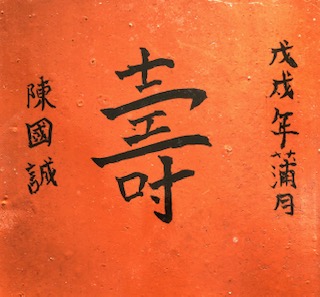 戊戌年蒲月
壽
陳國誠